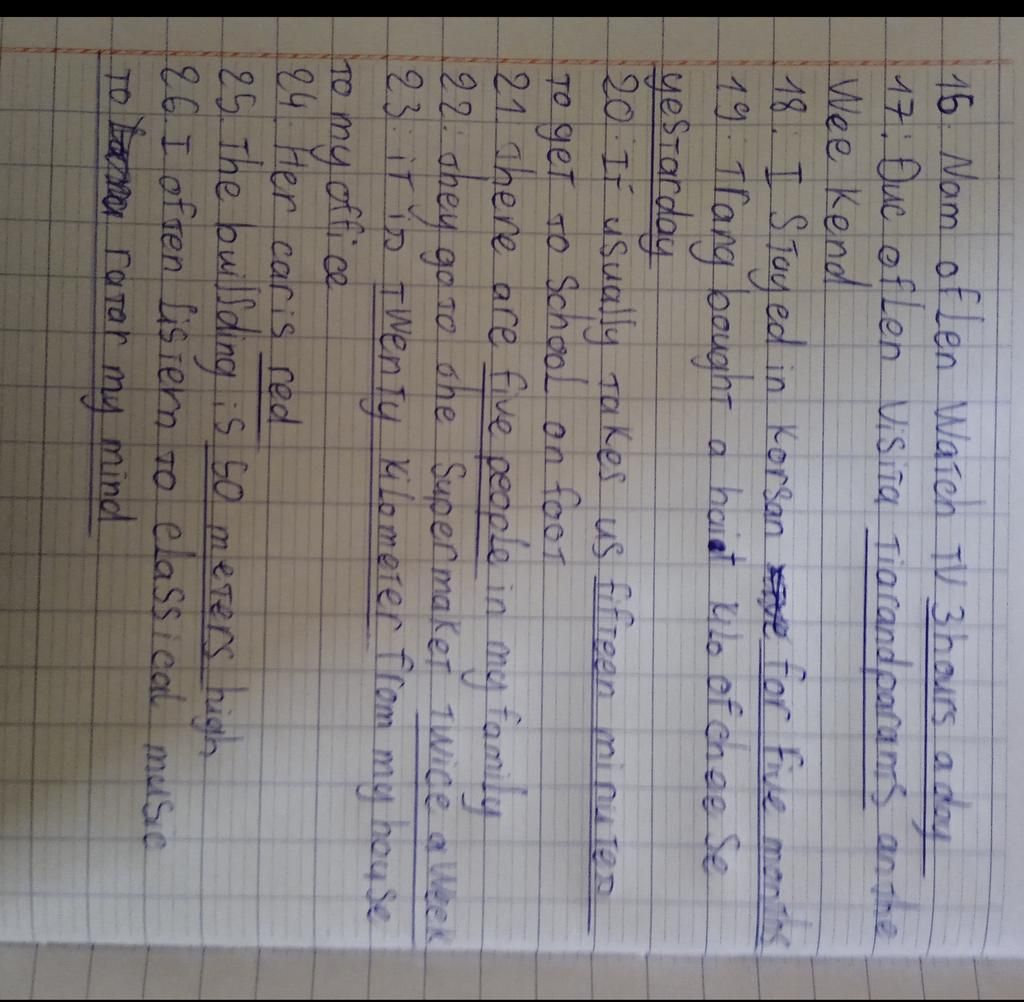 16. Nam often Watch TV 3 hours a day
17. Đuc often visita Tiarandparants on the
Wee Kend
18. I Stayed in Korsan for five months
19. Trang bought a hait kilo of cheese
yestarday
20. It usually takes us fifteen minutes
to get to School on foot
21 there are five people in my family
22. they go to the Supermaket twice a week
23. it is twenty kilometer from my house
to my office
24. Her car is red
25. The building is 50 meters high
26. I often listern to classical music
to ratar my mind